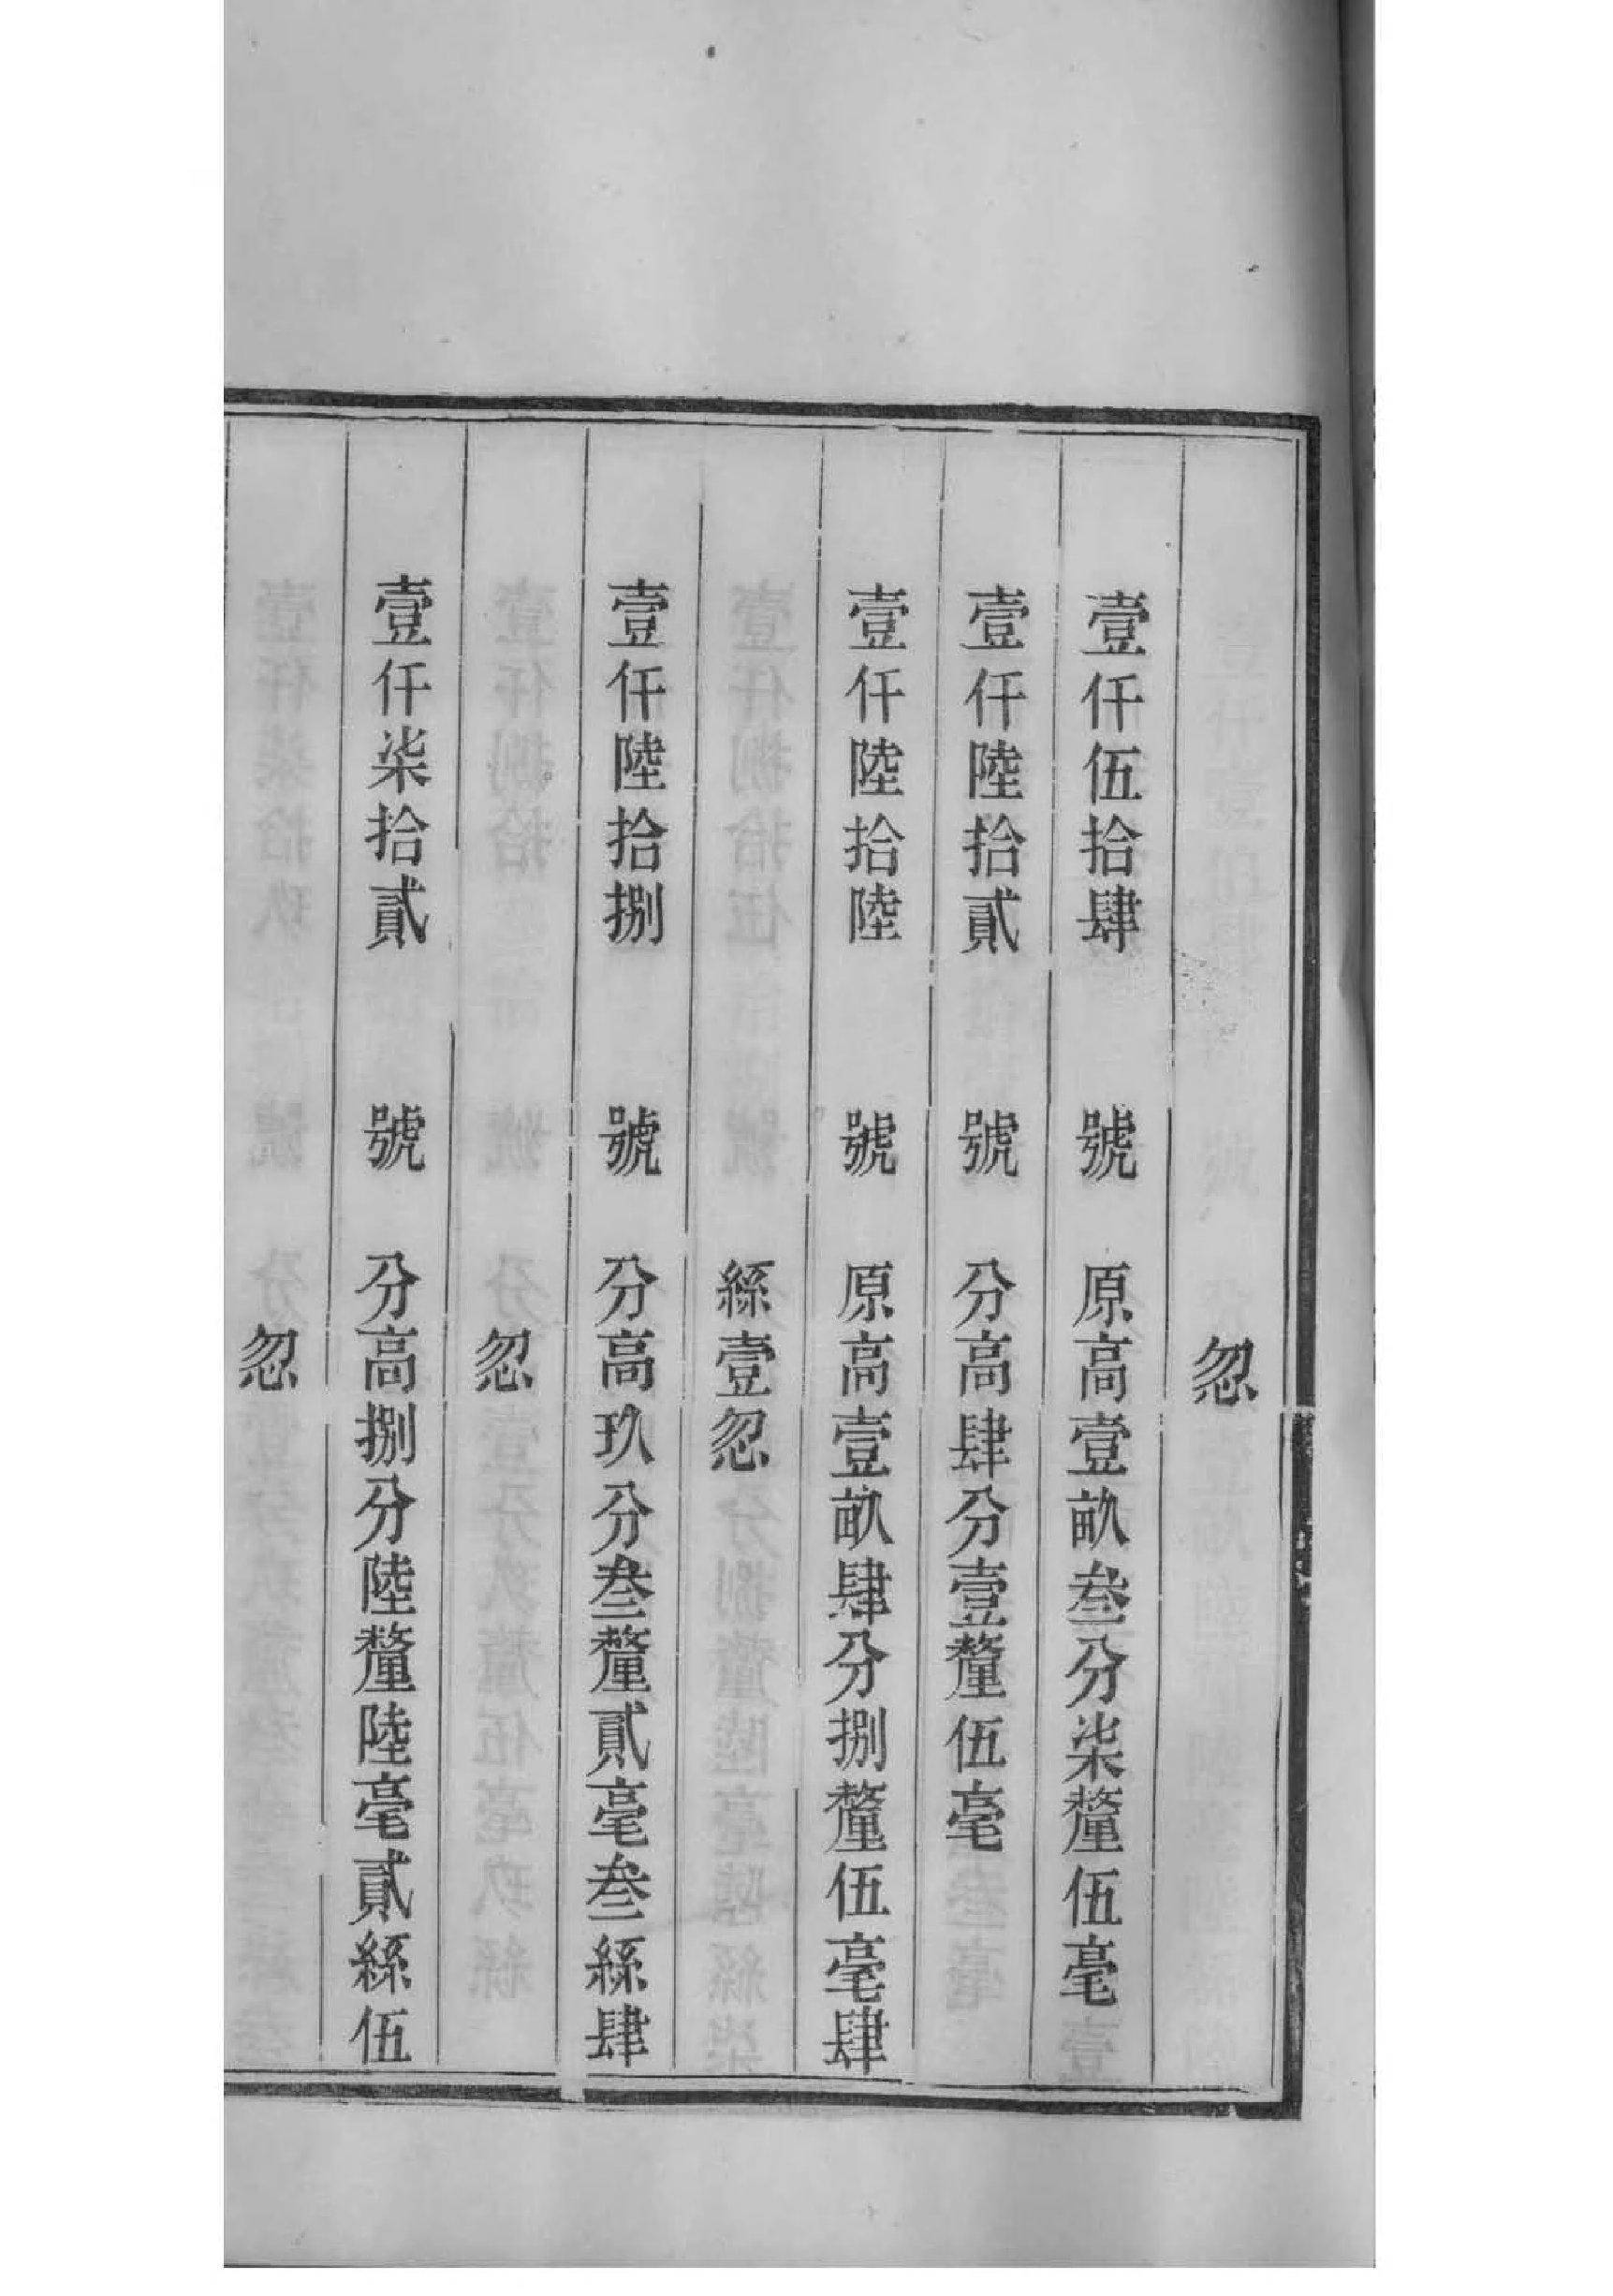 忽
壹仟伍拾肆　號　原高壹畝叁分柒釐伍毫
壹仟陸拾貳　號　分高肆分壹釐伍毫
壹仟陸拾陸　號　原高壹畝肆分捌釐伍毫肆
絲壹忽
壹仟陸拾捌　號　分高玖分叁釐貳毫叁絲肆
忽
壹仟柒拾貳　號　分高捌分陸釐陸毫貳絲伍
忽